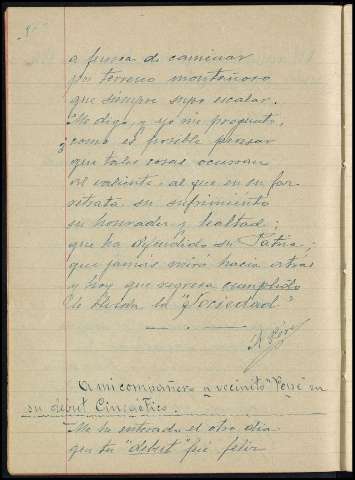 a fuerza de caminar
por terreno montañoso
que siempre supo escalar.
Me digo, y yo me pregunto,
como es posible pensar
que tales cosas ocurran
al valiente, al que en su faz
retrata su sufrimiento
su honradez y lealtad;
que ha defendido su Patria;
que jamás miró hacia atrás
y hoy que regresa cumplido
le la "Sociedad"
A mi compañero y vecinito "Pepe" en
su debut Cinegético.
Me he enterado el otro dia
que tu "debut" fué feliz